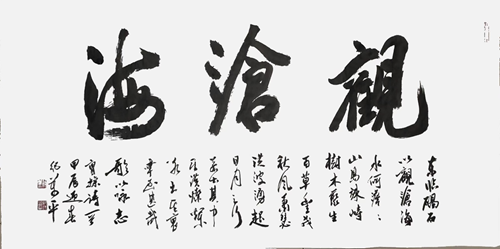 觀滄海
東臨碣石
以觀滄海
水何澹澹
山島竦峙
樹木叢生
百草豐茂
秋風蕭瑟
洪波湧起
日月之行
若出其中
星漢燦爛
若出其里
幸甚至哉
歌以詠志
曹操詩